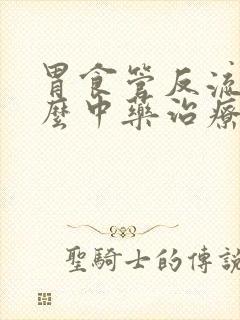 胃食管反流
麼中藥治療
聖騎士的傳說